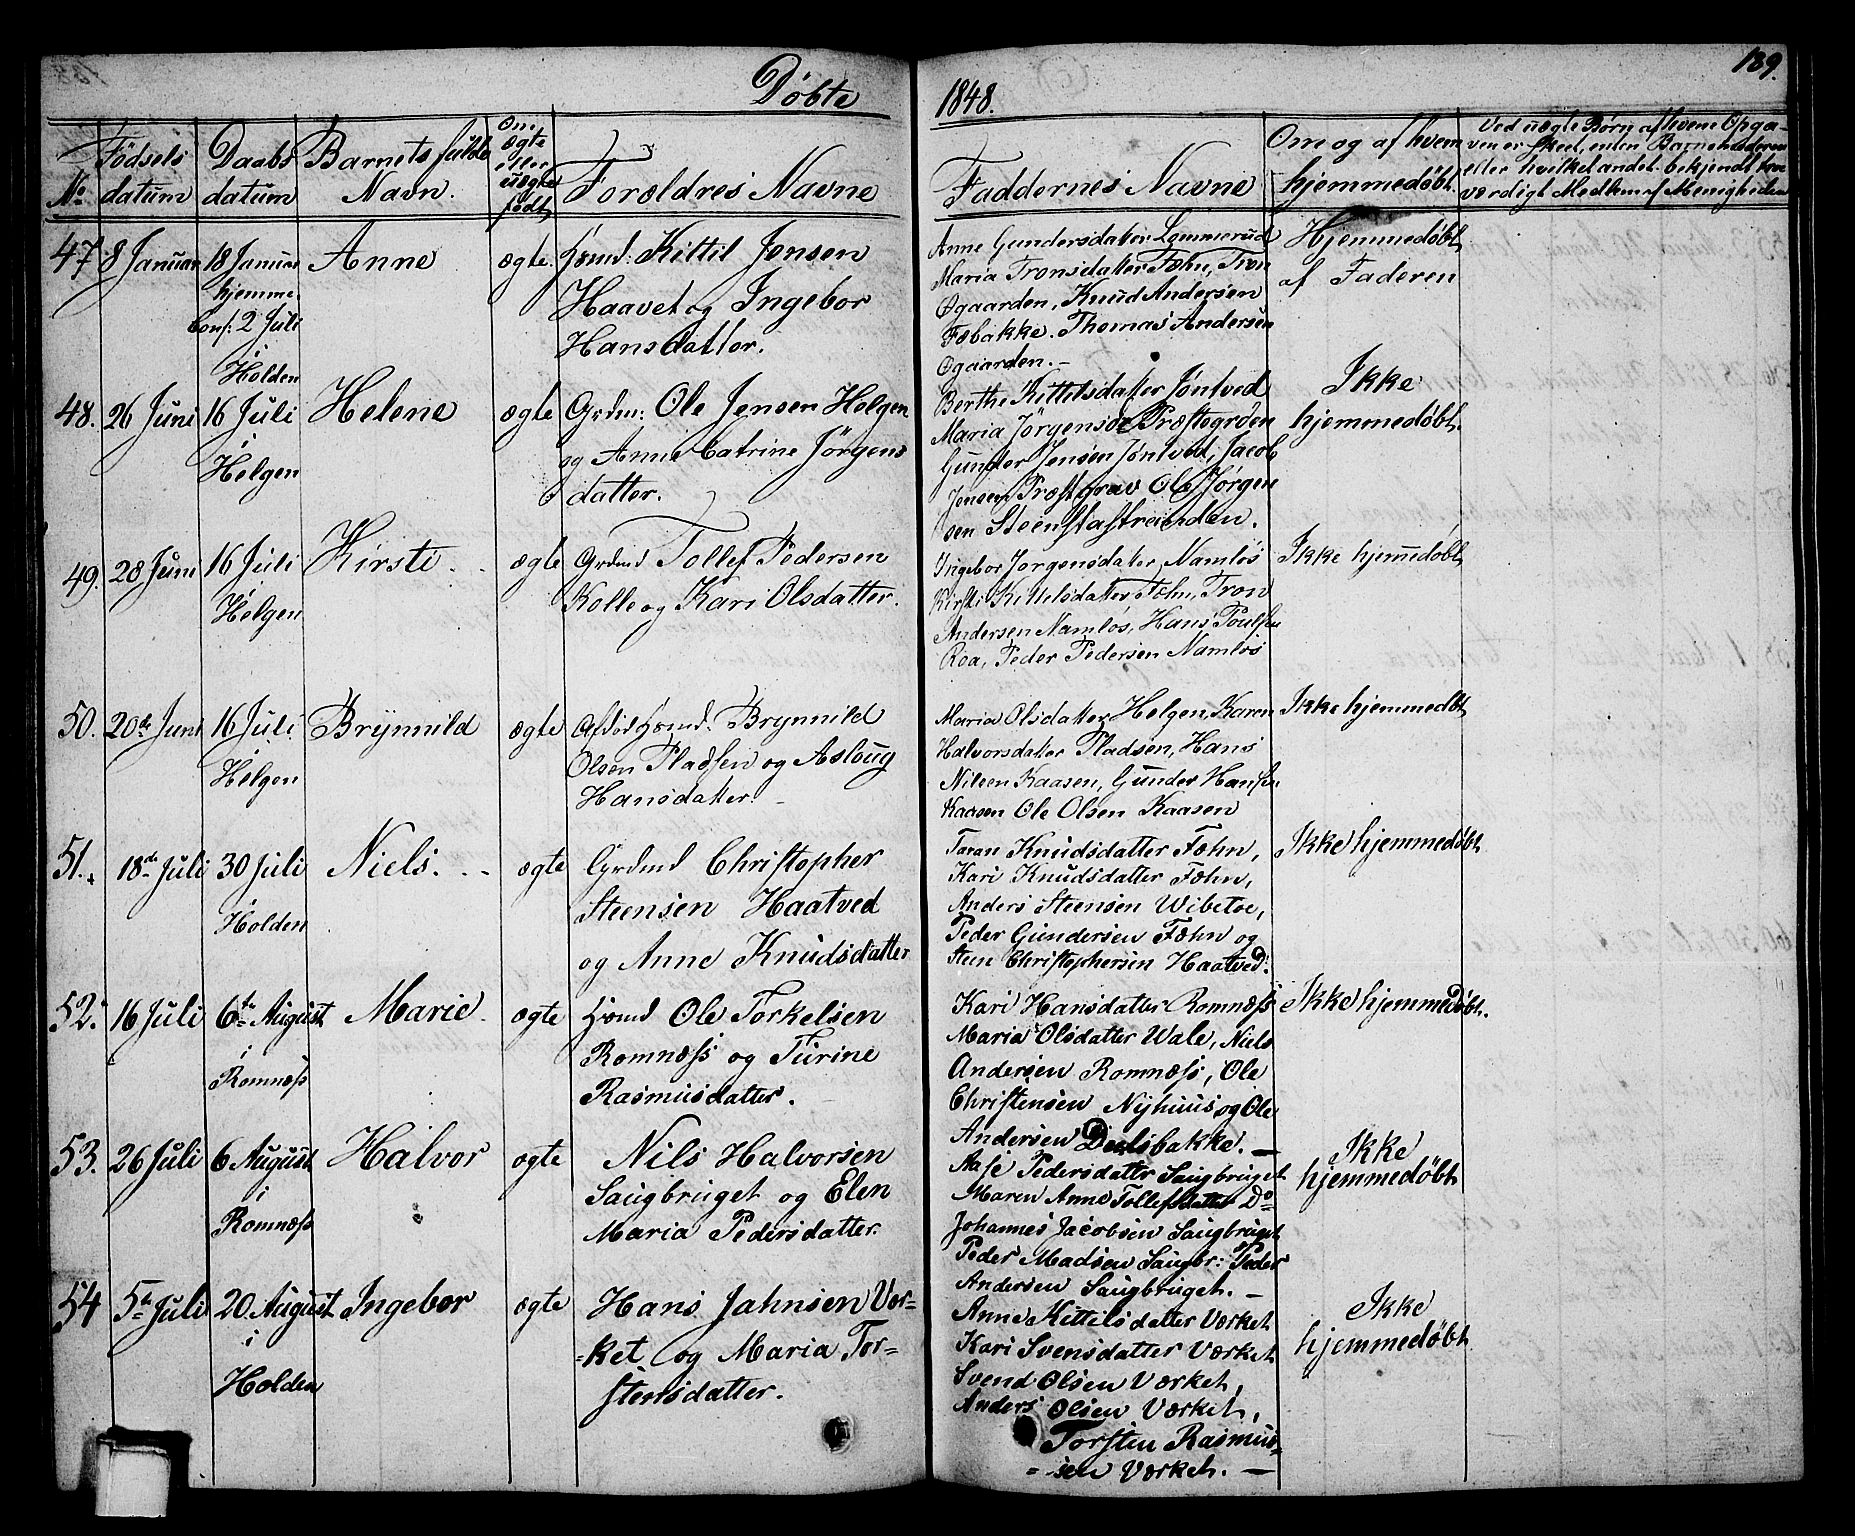 Døbte
1848.
189.
No
Fødsels datum
Daabs datum
Barnets fulde Navn.
Om ægte eller uægte født
Forældres Navne
Faddernes Navne
Om og af hvem hjemmedøbt
Ved uægte Børn af hvem Opga-
ven er skeet, enten Barnemoderen
eller hvilket andet bekjendt tro
værdigt Medlem af Menigheden
47. 8 Januar 18 Januar hjemme. Conf: 2 Juli i Holden Anne ægte.
Hsmd: Kittil Jensen
Haavet og Ingebor
Hansdatter.
Anne Gundersdatter Lammerud
Maria Tronsdatter Fæhn, Tron
Øgaarden, Knud Andersen
Fæbakke. Thomas Andersen
Ogaarden. –
Hjemmedøbt
af Faderen
48. 26 Juni 16 Juli i Helgen Helene ægte
Grdm: Ole Jensen Helgen
og Anne Catrine Jörgens
datter.
Berthe Kittelsdatter Jöntved
Maria Jörgensdr Præstegrden
Gunder Jensen Jöntved, Jacob
Jensen Præstgrav Ole Jørgen
sen Steenstastreiden.
Ikke
hjemmedøbt.
49. 28 Juni 16 Juli i Helgen Kirsti ægte
Grdmd Tollef Pedersen
Kolle og Kari Olsdatter.
Ingebor Jørgensdater, Namløs
Kirsti Kittelsdatter Fæhn, Tron
Andersen Namløs, Hans Poulsen
Roa, Peder Pedersen Namløs
Ikke hjemedøbt
50. 20de Juni 16 Juli i Helgen Brynnild ægte
Afdöd Hsmd. Brynnild
Olsen Pladsen og Asloug
Hansdatter. –
Maria Olsdatter Helgen Karen
Halvorsdatter Pladsen, Hans
Nilsen Kaasen, Gunder Hansen
Kaasen Ole Olsen Kaasen
Ikke hjemmedøbt
51. 18de Juli 30 Juli i Holden Niels. ægte
Grdmd Christopher
Steensen Haatved
og Anne Knudsdatter
Taran Knudsdatter Fæhn,
Kari Knudsdatter Fæhn,
Anders Steensen Wibetoe,
Peder Gundersen Fæhn og
Steen Christophersen Haatved.
Ikke hjemmedøbt
52. 16 Juli 6te August i Romnæss Marie. ægte
Hsmd Ole Torkelsen
Romnæss og Turine
Rasmusdatter.
Kari Hansdatter Romnæss
Maria Olsdatter Wale, Niels
Andersen Romnæss, Ole
Christensen Nyhuus og Ole
Andersen Dalsbakke. –
Ikke hjemmedøbt.
53. 26 Juli 6 August i Romnæss Halvor ægte
Nils Halvorsen
Saugbruget og Elen
Maria Pedersdatter.
Aase Pedersdatter Saugbruget
Maren Anne Tollefsdatter Do
Johannes Jacobsen Saugbruget
Peder Madsen Saugbr: Peder
Andersen Saugbruget. –
Ikke
hjemmedøbt
54 5te Juli 20 August i Holden Ingebor ægte
Hans Jahnsen Vær-
-ket og Maria Tor-
stensdatter.
Anne Kittilsdatter Værket
Kari Svensdatter Værket
Svend Olsen Værket,
Anders Olsen Værket,
Torsten Rasmus-
-sen Værket. –
Ikke
hjemmedøbt